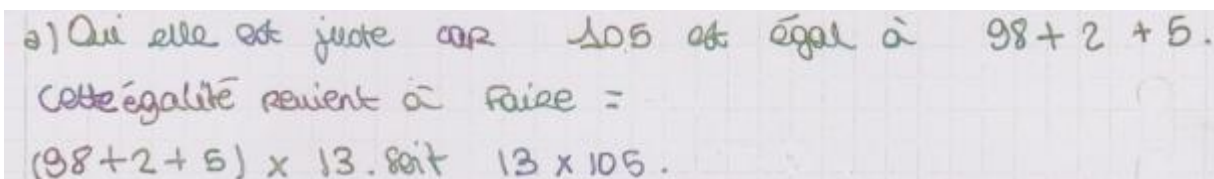 a) Oui elle est juste car 105 est égal à 98 + 2 + 5.
cette égalité revient à faire =
(98 + 2 + 5) x 13. soit 13 x 105.